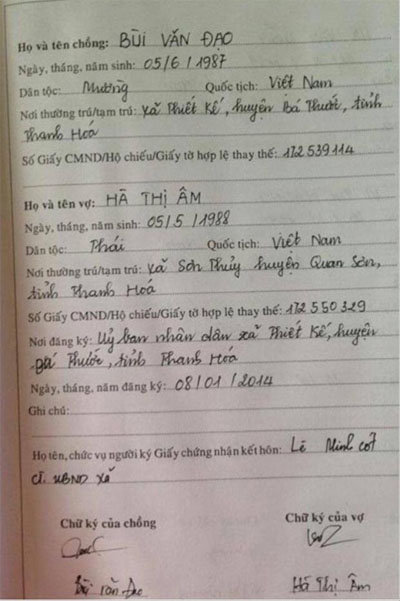 Họ và tên chồng: BÙI VĂN ĐẠO
Ngày, tháng, năm sinh: 05/6/1987
Dân tộc: Mường Quốc tịch: Việt Nam
Nơi thường trú/tạm trú: xã Thiết Kế, huyện Bá Thước, tỉnh
Thanh Hoá
Số Giấy CMND/Hộ chiếu/Giấy tờ hợp lệ thay thế: 172 539 114
Họ và tên vợ: HÀ THỊ ÂM
Ngày, tháng, năm sinh: 05/5/1988
Dân tộc: Thái Quốc tịch: Việt Nam
Nơi thường trú/tạm trú: xã Sơn Thủy huyện Quan Sơn,
tỉnh Thanh Hoá
Số Giấy CMND/Hộ chiếu/Giấy tờ hợp lệ thay thế: 172 550 329
Nơi đăng ký: Uỷ ban nhân dân xã Thiết Kế, huyện
Bá Thước, tỉnh Thanh Hóa
Ngày, tháng, năm đăng ký: 08/01/2014
Ghi chú:
Họ tên, chức vụ người ký Giấy chứng nhận kết hôn: Lê Minh
UBND xã
Chữ ký của chồng Chữ ký của vợ
Bùi Văn Đạo Hà Thị Âm